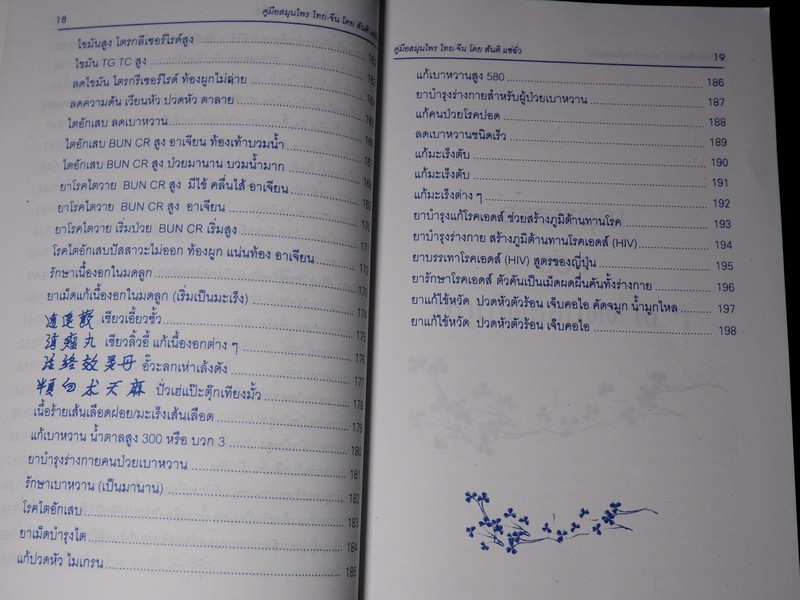 18
คู่มือสมุนไพร ไทย-จีน โดย สันติ
ไขมันสูง ไตรกลีเซอร์ไรด์สูง
ไขมัน TG TC สูง
ลดไขมัน ไตรกรีเซอร์ไรด์ ท้องผูกไม่ถ่าย
ลดความดัน เวียนหัว ปวดหัว ตาลาย
ไตอักเสบ ลดเบาหวาน
ไตอักเสบ BUN CR สูง อาเจียน ท้องเท้าบวมน้ำ
ไตอักเสบ BUN CR สูง ป่วยมานาน บวมน้ำมาก
ยาโรคไตวาย BUN CR สูง มีไข้ คลื่นไส้ อาเจียน
ยาโรคไตวาย BUN CR สูง อาเจียน
ยาโรคไตวาย เริ่มป่วย BUN CR เริ่มสูง
โรคไตอักเสบปัสสาวะไม่ออก ท้องผูก แน่นท้อง อาเจียน
รักษาเนื้องอกในมดลูก 173
ยาเม็ดแก้เนื้องอกในมดลูก (เริ่มเป็นมะเร็ง) 174
逍遥散 เซียวเอี้ยวซั่ว 175
消瘤丸 เซียวลิ้วอี๊ แก้เนื้องอกต่าง ๆ 176
活络效灵丹 อั๊วะลกเห่าเล้งตัง 177
半夏白术天麻 ปั่วเฮ่แป๊ะตุ๊กเทียงมั้ว 178
เนื้อร้ายเส้นเลือดฝอย/มะเร็งเส้นเลือด 179
แก้เบาหวาน น้ำตาลสูง 300 หรือ บวก 3 180
ยาบำรุงร่างกายคนป่วยเบาหวาน 181
รักษาเบาหวาน (เป็นมานาน) 182
โรคไตอักเสบ 183
ยาเม็ดบำรุงไต 184
แก้ปวดหัว ไมเกรน 185
คู่มือสมุนไพร ไทย-จีน โดย สันติ แซ่ฉั่ว 19
แก้เบาหวานสูง 580 186
ยาบำรุงร่างกายสำหรับผู้ป่วยเบาหวาน 187
แก้คนป่วยโรคปอด 188
ลดเบาหวานชนิดเร็ว 189
แก้มะเร็งตับ 190
แก้มะเร็งตับ 191
แก้มะเร็งต่าง ๆ 192
ยาบำรุงแก้โรคเอดส์ ช่วยสร้างภูมิต้านทานโรค 193
ยาบำรุงร่างกาย สร้างภูมิต้านทานโรคเอดส์ (HIV) 194
ยาบรรเทาโรคเอดส์ (HIV) สูตรของญี่ปุ่น 195
ยารักษาโรคเอดส์ ตัวคันเป็นเม็ดผดผื่นคันทั้งร่างกาย 196
ยาแก้ไข้หวัด ปวดหัวตัวร้อน เจ็บคอไอ คัดจมูก น้ำมูกไหล 197
ยาแก้ไข้หวัด ปวดหัวตัวร้อน เจ็บคอไอ 198